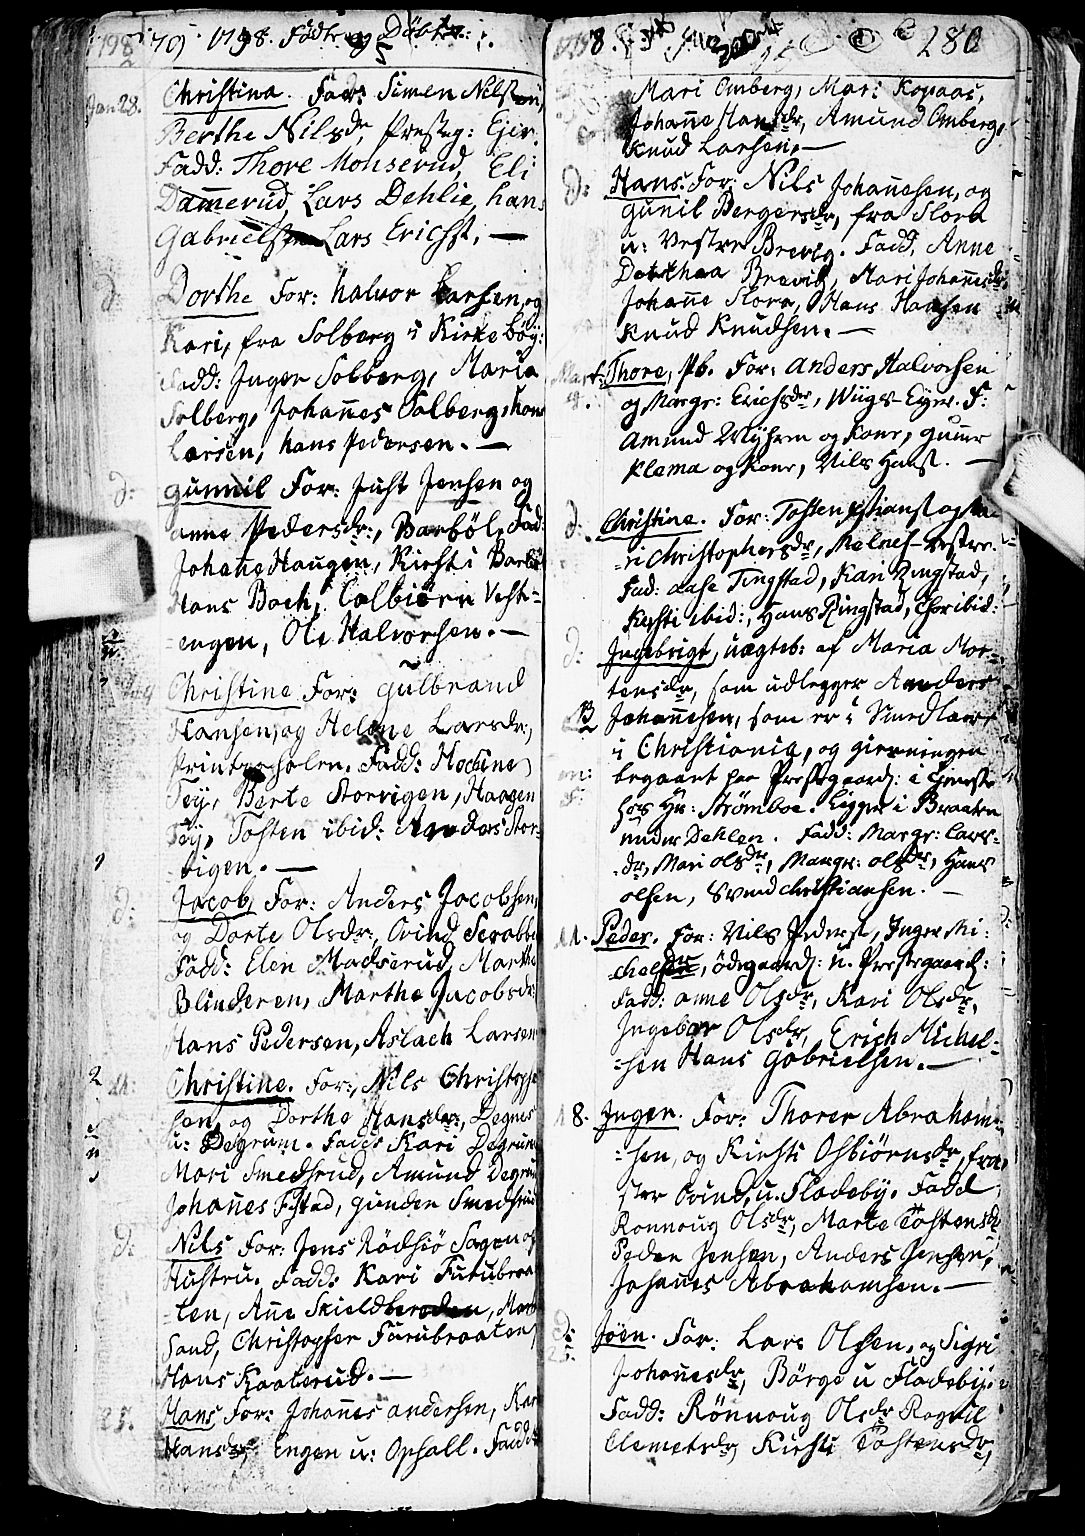 79. 1798. Fødte og Døbte
Jan 28. Christina. Forr: Simen Nilsen,
Berthe Nilsdr, Præsteg: Ejer.
Fadd: Thore Monserud, Eli
Damerud, Lars Dehlie, hans
Gabrielsen Lars Erichs. —
d: Dorthe For: halvor Larsen, og
Kari, fra Solberg i Kirkebøy:
Fadd: Inger Solberg, Maria
Solberg, Johanes Solberg, hans
Larsen, hans Pedersen. —
d: Gunnil For: Just Jensen og
anne Pedersdr:, Barbøl, Fad:
Johane Haugen, Kirsti Barbøl
Hans Bach, Colbiørn Vest-
-engen, Ole Halvorsen. —
Christine For: gulbrand
Hansen, og Helene Larsdr:,
Fadd:
Tej, Berte Storrigen, Haagen
Tej, Tosten ibid: Anders Stor-
-rigen. —
d: Jacob, For: Anders Jacobsen,
og Dorte Olsdr:, Ovind
Fadd: Elen Madserud, Marthe
Blinderen, Marthe Jacobsdr:
Hans Pedersen, Aslach Larsen
11: Christine. For:, Nils Christoph-
sen, og Dorthe Hansdr:, Degnes
u: Degrum. Fadd: Kari Degrum
Mari Smedsrud, Amund Degrum
Johanes Fjstad, gunder Smedsrud
d: Nils For: Jens Rødsiø Sagen og
Hustru. Fadd: Kari Furubraa-
-ten, Ane Skieldbreden, Mari
Sand, Christopher Furubraaten,
Hans Kaaterud. —
25. Hans For: Johanes andersen, Kari
Hansdr: Engen u: Ophall. Fadd:
1798. 280
Mari Omberg, Mar: Kopaas,
Johane Hansdr, Amund Omberg,
Knud Larsen, —
d: Hans. For: Nils Johanesen, og
gunil Bergersdr, fra Flora
u: Vestre Brevig. Fadd, Anne
Dorthea Brevik, Mari Johanesdr,
Johane Flora, Hans Hansen
Knud Knudsen. —
Mart: 4. Thore, Pb. For: Anders Halvorsen
og Margr: Erichsdr, Wiigs-Eyer. F:
Amund Myhren og Kone, guner
Klema og Kone, Nils Hust. —
d. Christine. For: Tosten Kstianst og Ka-
-ri Christophersdr, Melnes-vestre.
Fad: aase Tingstad, Kari Ringstad,
Kirsti ibid:, Hans Ringstad, Chor ibid:
d: Ingebrigt, uægteb: af Maria Mor-
tensdr, som udlegger Anders
Johanesen, som er i Smedlære
i Christiania, og gierningen
begaaet paa Prestegaard: i Eneste
hos Hr: Strømboe. Ligger i Braaten
under Dehlen. Fadd: Margr: Lars-
-dr, Mari Olsdr, Margr: Olsdr, Hans
Olsen, Svend Christiansen. —
11. Peder. For: Nils Peders, Inger Mi-
chelsdr, ødegaard: u. Prestegaard:
Fadd: anne Olsdr, Kari Olsdr,
Ingebor Olsdr, Erich Michel-
-sen Hans Gabrielsen. —
18. Inger. For: Thorer Abraham-
-sen, og Kirsti Osbiørnsdr, fra
ster Ovind, u. Fladeby. Fadd
Ronnoug Olsdr, Marte Tostensdr
Peder Jensen, Anders Jensen,
Johanes Abrahamsen. —
d: 25: Joen. For: Lars Olsen, og Sigri
Johanesdr, Børge u Fladeby.
Fadd: Rønnoug Olsdr Ragnil
Clemetsdr, Kirsti Tostensdr,